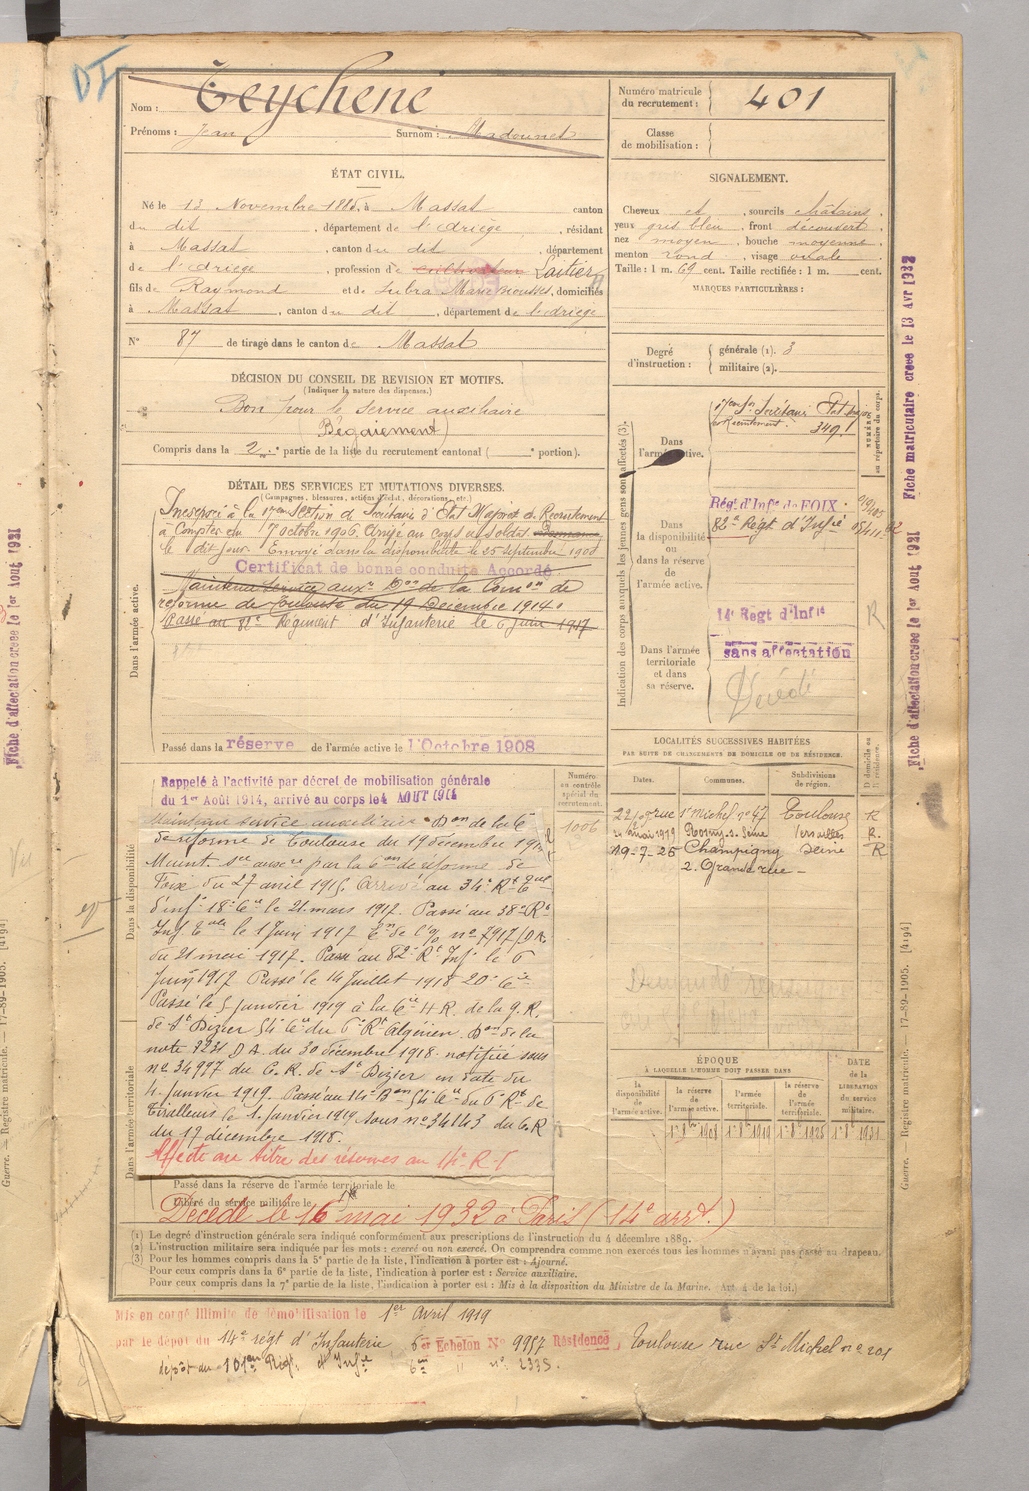 Nom : Teychené
Prénoms : Jean Surnom : Madounet
Numéro matricule du recrutement : 401
Classe de mobilisation :
ÉTAT CIVIL.
Né le 13 Novembre 1885, à Massat canton
du dit, département de l'Ariège, résidant
à Massat, canton du dit, département
de l'Ariège, profession de cultivateur Laitier
fils de Raymond et de Subra Marie domiciliés
à Massat, canton du dit, département de l'Ariège
N° 87 de tirage dans le canton de Massat
SIGNALEMENT.
Cheveux et, sourcils châtains,
yeux gris bleu, front découvert
nez moyen, bouche moyenne
menton rond, visage ovale
Taille : 1 m. 69 cent. Taille rectifiée : 1 m. cent.
MARQUES PARTICULIÈRES :
Degré d'instruction : générale (1). 3
militaire (2).
DÉCISION DU CONSEIL DE REVISION ET MOTIFS.
(Indiquer la nature des dispenses.)
Bon pour le service auxiliaire
(Bégaiement)
Compris dans la 2e partie de la liste du recrutement cantonal ( portion).
DÉTAIL DES SERVICES ET MUTATIONS DIVERSES.
(Campagnes, blessures, actions d'éclat, décorations, etc.)
Incorporé à la 17eme Section d Secrétaires d'Etat Major et de Recrutement
à Compter du 7 octobre 1906. Arrivé au corps et soldat
le dit jour. Envoyé dans la disponibilité le 25 septembre 1908
Certificat de bonne conduite Accordé
Maintenu service auxre Don de la Comon de
réforme de Toulouse du 19 Decembre 1914.
Passé au 82e Régiment d'Infanterie le 6 Juin 1917
Dans l'armée active.
Passé dans la réserve de l'armée active le 1 Octobre 1908
Indication des corps auxquels les jeunes gens sont affectés (3).
Dans l'armée active.
Secrétaires Etat Major
Recrutement 349
NUMÉRO au répertoire du corps.
Dans la disponibilité ou dans la réserve de l'armée active.
Régt d'Infie de FOIX
82e Régt d'Infie
Dans l'armée territoriale et dans sa réserve.
14e Regt d'Infie
sans affectation
R
Décédé
Rappelé à l'activité par décret de mobilisation générale
du 1er Août 1914, arrivé au corps le 4 AOUT 1914
Maintenu service auxiliaire Don de la Con
de réforme de Toulouse du 19 décembre 1914
Maint. sce auxre par la Con de réforme de
Foix du 27 avril 1915. Arrivé au 34e Rt
d'inf. 18e Cie le 21 mars 1917. Passé au 38e Rt
Inf. le 1 Juin 1917 no 7917/DA.
du 21 mai 1917. Passé au 82e Rt Inf. le 6
Juin 1917 Passé le 14 Juillet 1918 20e Cie
Passé le 5 Janvier 1919 à la Cie H R. de la g. R.
de St Dizier 54e Cie du 6e Rt Algérien. Don de la
note 8231 D A. du 30 décembre 1918. notifiée sous
no 34997 du G. R. de St Dizier en date du
4 Janvier 1919. Passé au 14e Bon 54e Cie du 6e Rt de
Tirailleurs le 1 Janvier 1919 sous no 34143 du G. R
du 17 décembre 1918.
Affecté au titre des réserves au 14e R. I
Dans la disponibilité
Dans l'armée territoriale
Numéro au contrôle spécial du recrutement.
1006
LOCALITÉS SUCCESSIVES HABITÉES
PAR SUITE DE CHANGEMENTS DE DOMICILE OU DE RÉSIDENCE.
Dates. Communes. Subdivisions de région. D domicile ou R résidence.
rue St Michel no 47 Toulouse R
mai 1919 Rosny-s-Seine Versailles R.
19-7-26 Champigny Seine R
2. Grande rue
ÉPOQUE
A LAQUELLE L'HOMME DOIT PASSER DANS
la disponibilité de l'armée active. la réserve de l'armée active. l'armée territoriale. la réserve de l'armée territoriale.
DATE de la LIBÉRATION du service militaire.
Passé dans la réserve de l'armée territoriale le
Libéré du service militaire le
Décédé le 16 mai 1932 à Paris (14e arrt.)
(1) Le degré d'instruction générale sera indiqué conformément aux prescriptions de l'instruction du 4 décembre 1889.
(2) L'instruction militaire sera indiquée par les mots : exercé ou non exercé. On comprendra comme non exercés tous les hommes n'ayant pas passé au drapeau.
(3) Pour les hommes compris dans la 5e partie de la liste, l'indication à porter est : Ajourné.
Pour ceux compris dans la 6e partie de la liste, l'indication à porter est : Service auxiliaire.
Pour ceux compris dans la 7e partie de la liste, l'indication à porter est : Mis à la disposition du Ministre de la Marine. Art. 4 de la loi.)
Mis en congé illimité de démobilisation le 1er Avril 1919
par le dépôt du 14e regt d'Infanterie 6e Echelon No 9957 Résidence, Toulouse rue St Michel no 201
dépôt du 101eme Regt d'Infie 6em " no 2335.
Fiche matriculaire créée le 13 Avr 1932
Fiche d'affectation créée le 1er Août 1921
Fiche d'affectation créée le 1er Août 1921
Guerre. — Registre matricule. — 17-89-1905. [4194]
Guerre. — Registre matricule. — 17-89-1905. [4194]